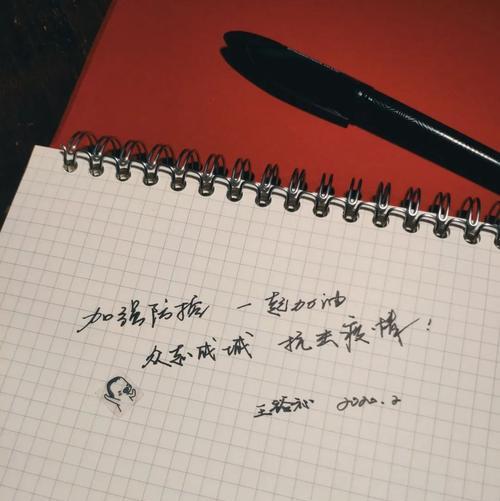 加强防控 一起加油
众志成城 抗击疫情!
2020.2